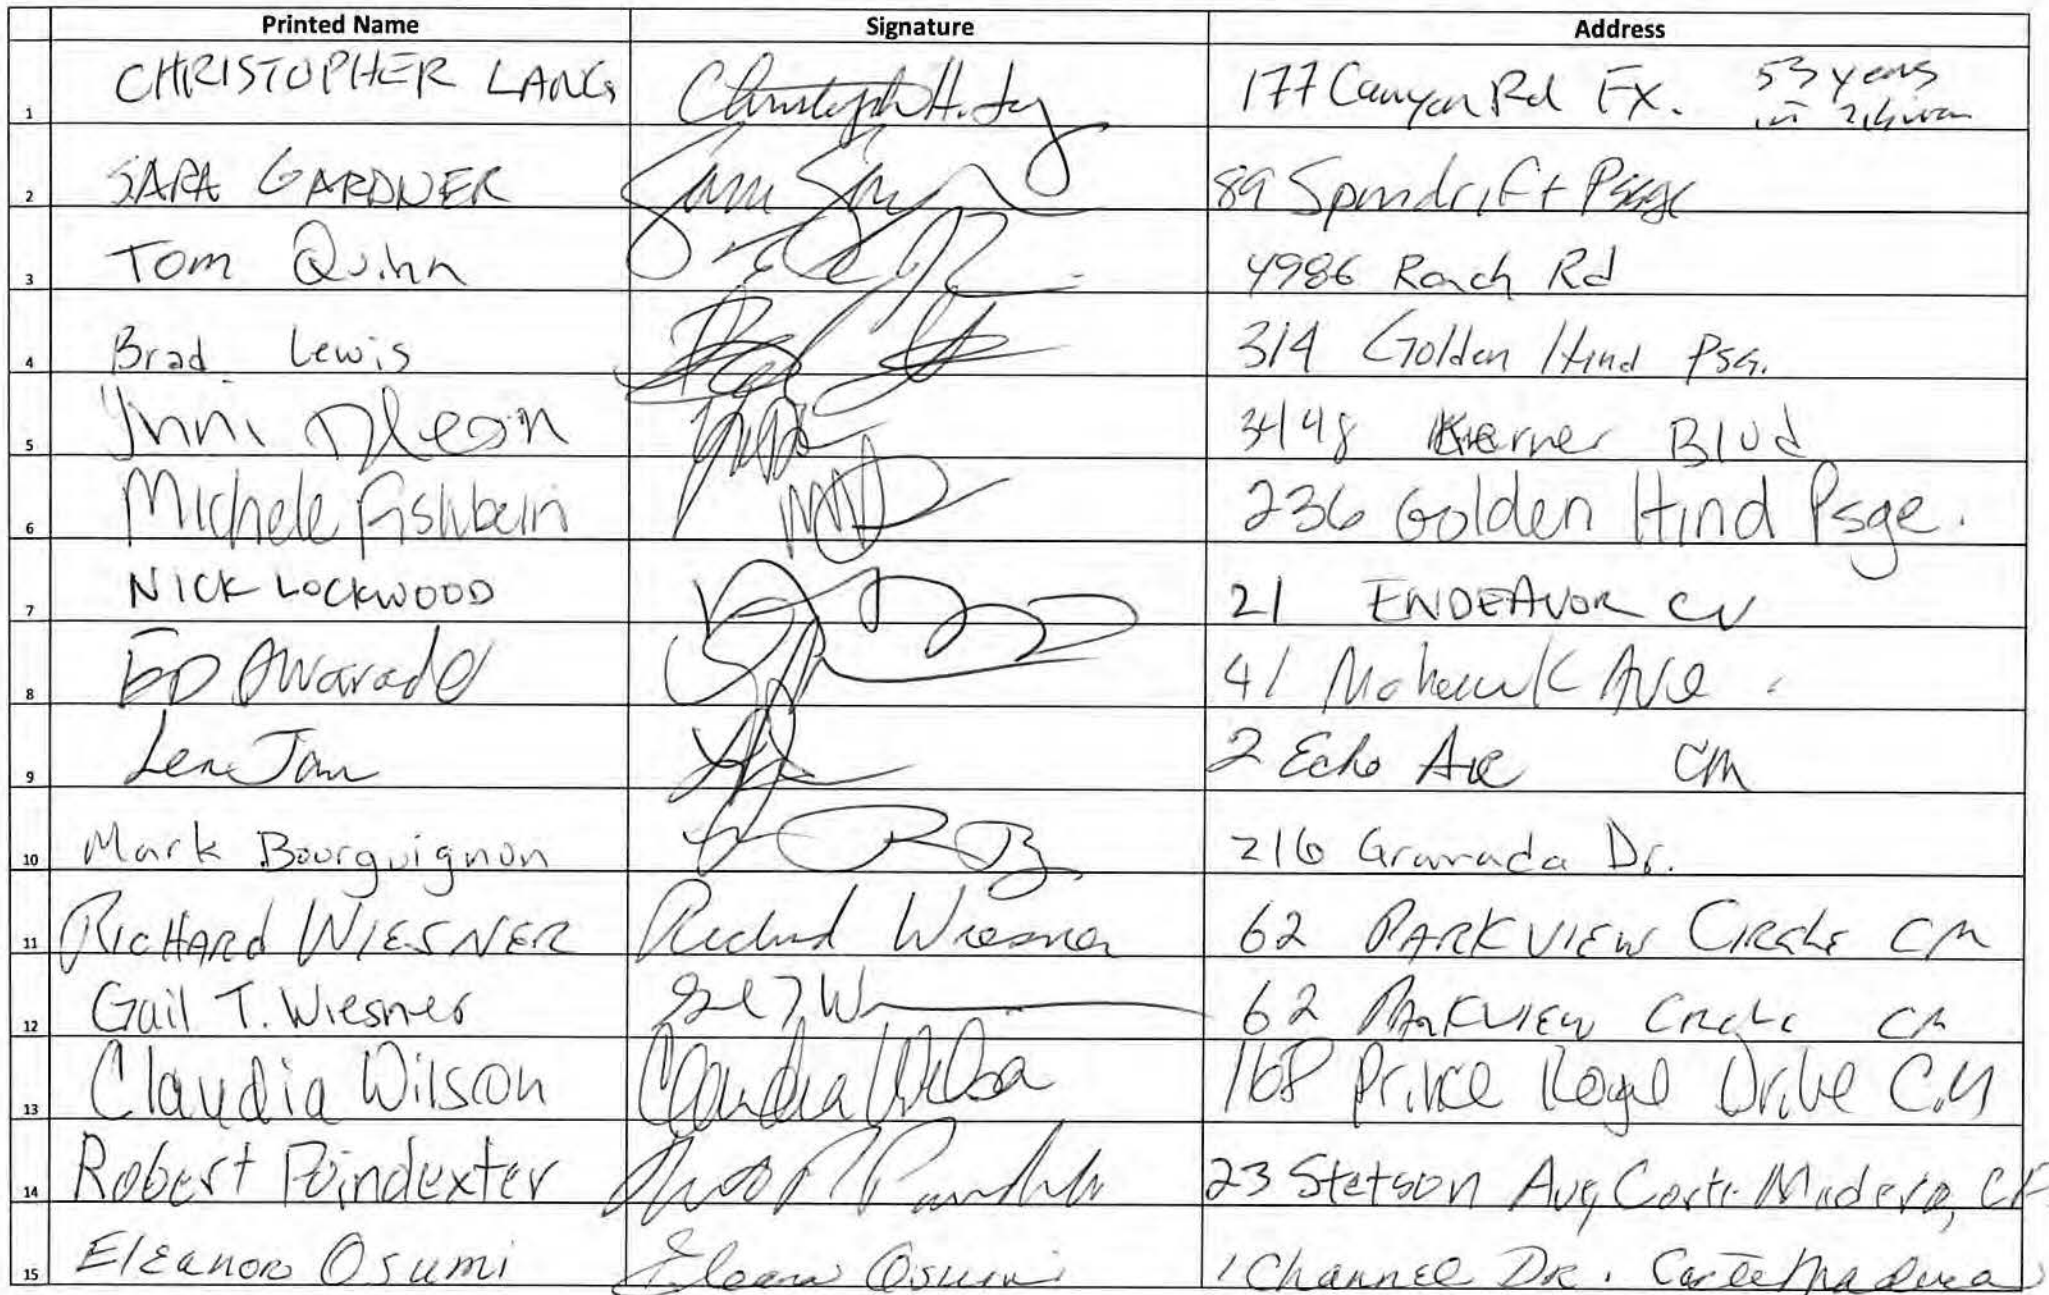 Printed Name Signature Address
1 CHRISTOPHER LANG Christoph H. Lang 177 Canyon Rd FX. 53 years
in
2 SARA GARDNER 89 Spindrift Psge
3 Tom Quinn 4986 Roach Rd
4 Brad Lewis 314 Golden Hind PSG.
5 3148 Kerner Blvd
6 Michele Fishbein 236 Golden Hind Psge.
7 NICK LOCKWOOD 21 ENDEAVOR CV
8 ED Alvarado 41 Mohawk Ave
9 2 Echo Ave CM
10 Mark Bourguignon 216 Granada Dr.
11 RICHARD WIESNER Richard Wiesner 62 PARKVIEW CIRCLE CM
12 Gail T. Wiesner 62 PARKVIEW CIRCLE CM
13 Claudia Wilson Claudia Wilson 168 Prince Royal Drive C.M
14 Robert Poindexter 23 Stetson Ave, Corte Madera, CA
15 Eleanor Osumi Eleanor Osumi 1 Channel DR. Corte Madera